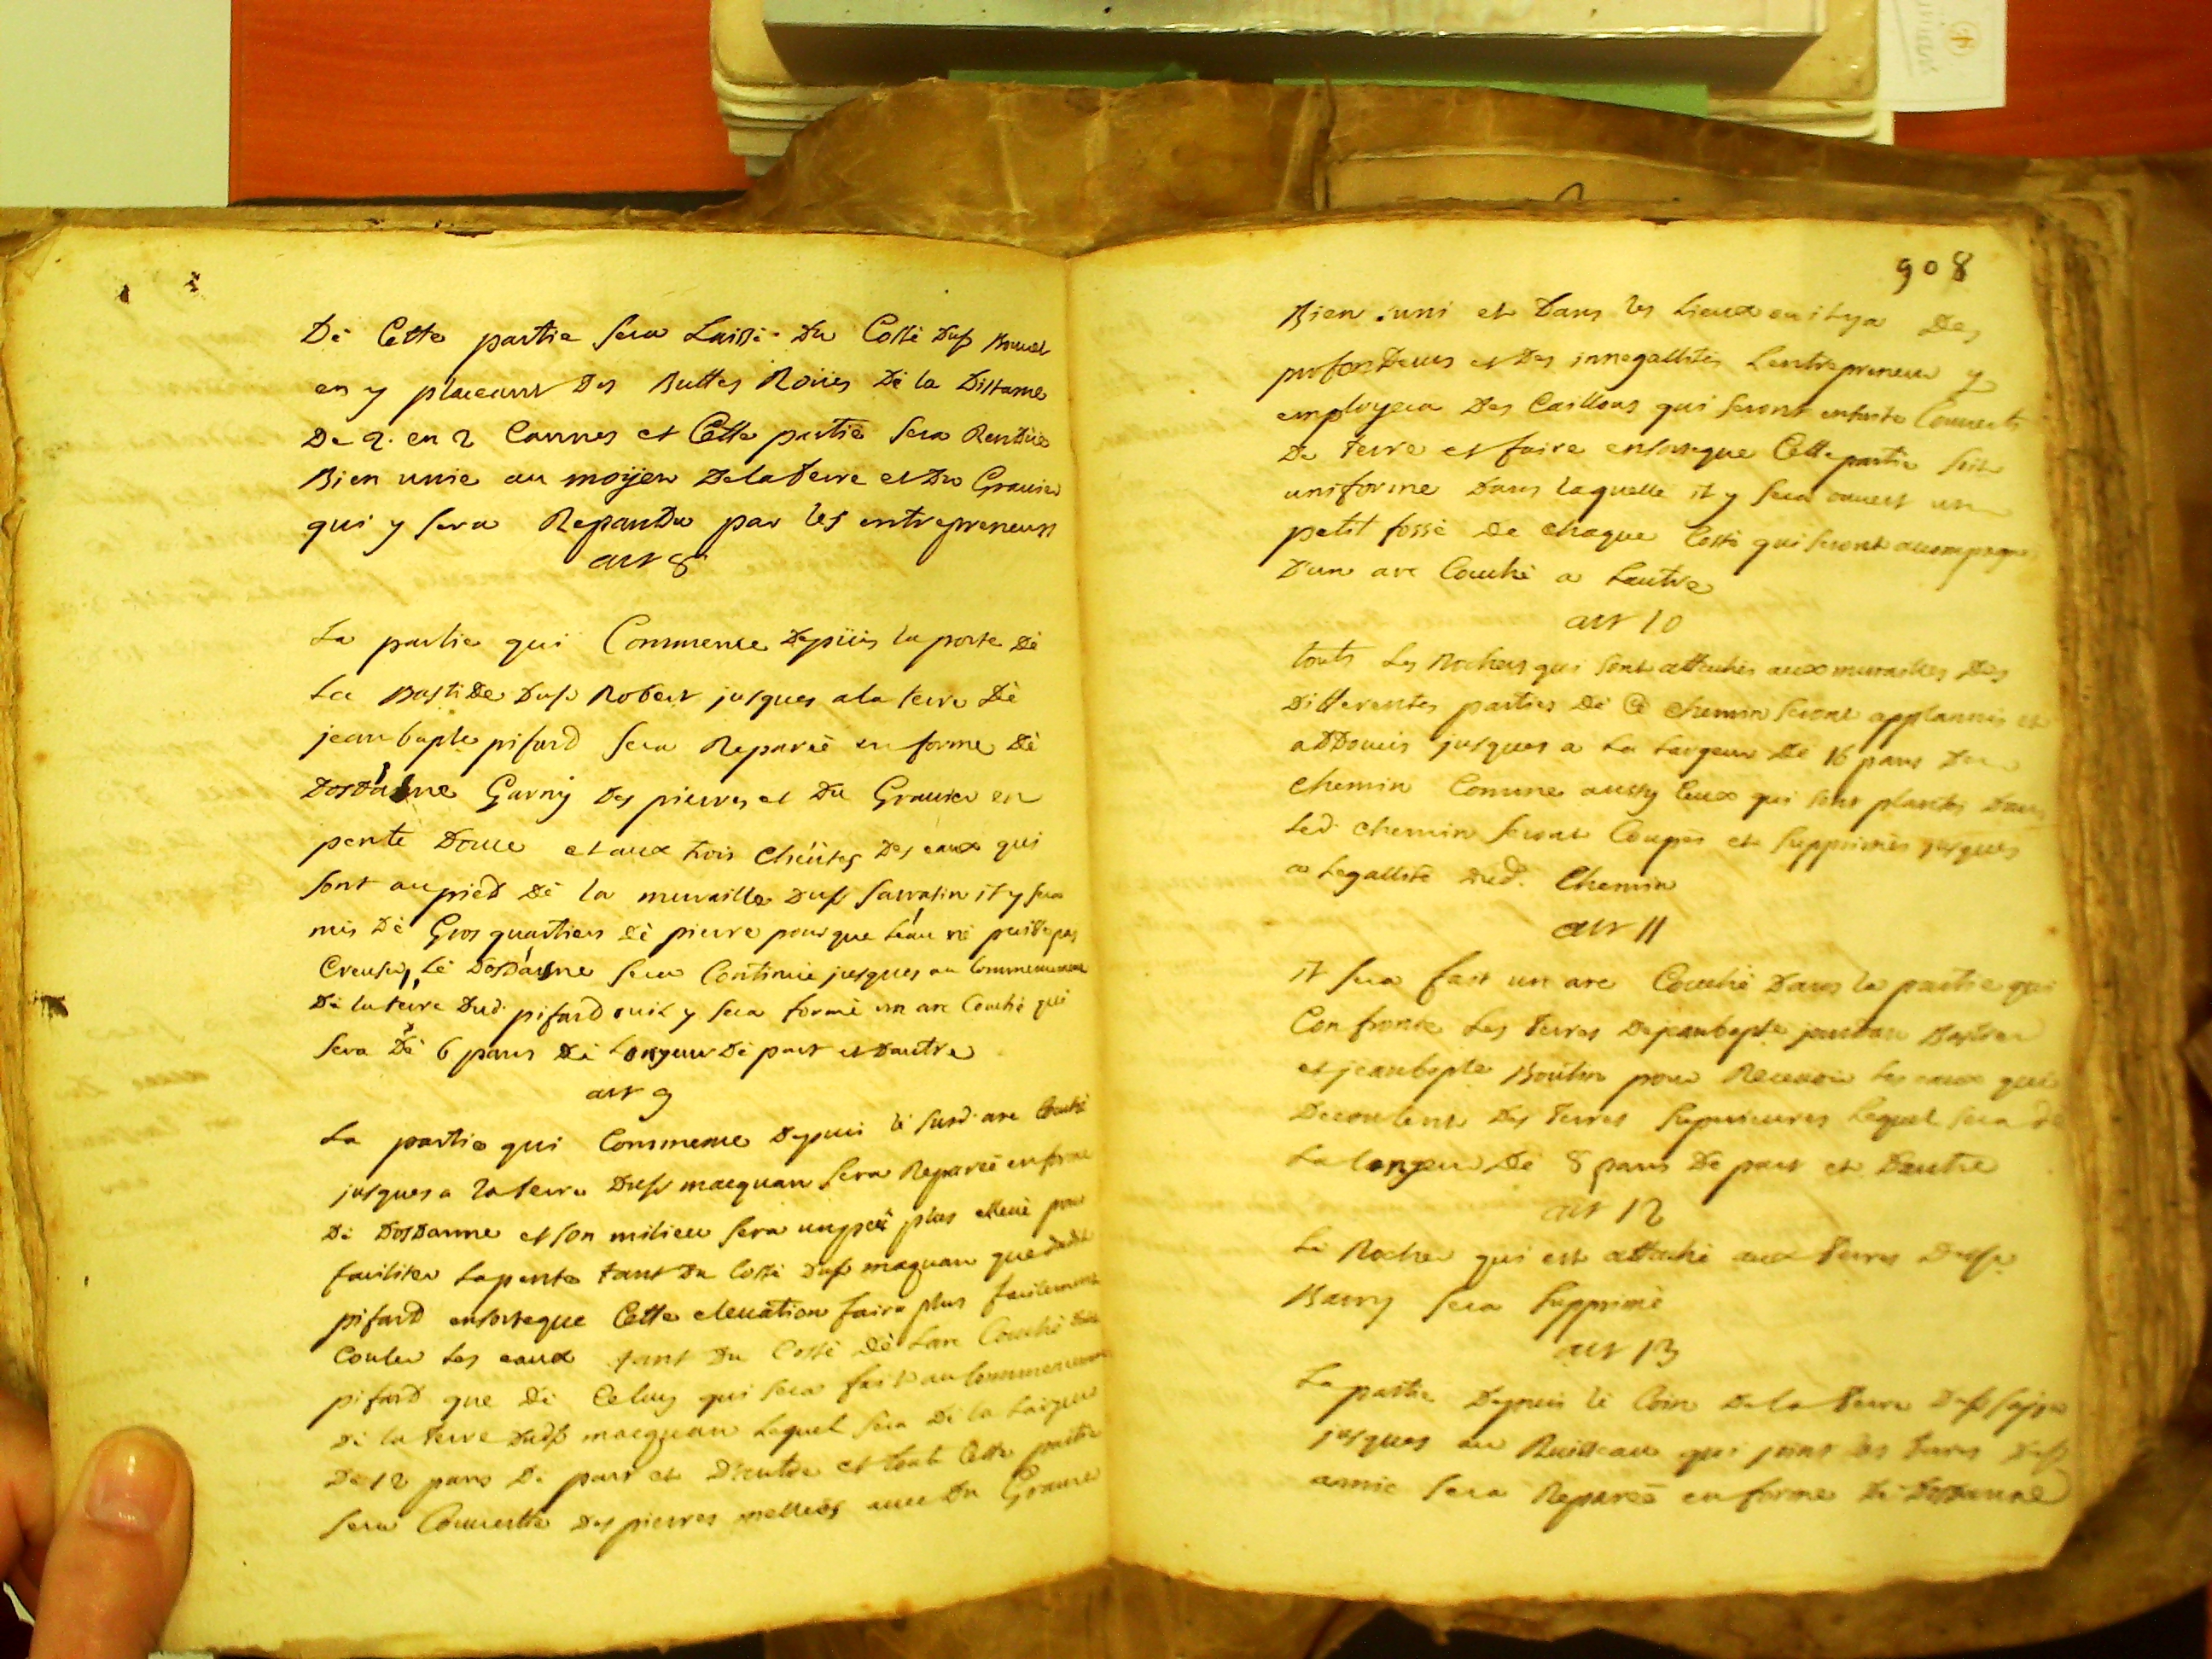 Dé Cette partie sera Laissé du Costé dus Bouat
en y placeant des Buttes Roüés Dé la Distame
De 2. en 2 Cannes et Cette partie sera Rendüe
Bien unie au moÿen De la terre et Du Gravier
qui y sera Repandu par les entrepreneurs
art 8
La partie qui Commence Depüis la porte Dé
La Bastide Dusr Robert jusques a la terre Dé
jean bapte pifard sera Reparéé en forme Dé
Dosdasne Garny Des pierres et Du Gravier en
pente Douce et aux trois cheütes Des eaux qui
sont au pied Dé la muraille dusr sarrasin il y sera
mis Dé Gros quartiers Dé pierre pour que léau né puisse pas
Creuser, Lé Dosdasne sera Continüé jusques au Commencement
Dé la terre Dud. pifard ou il y sera formé un arc Couché qui
sera Dé 6 pans Dé Longeur Dé part et Dautre
art 9
La partie qui Commence Depuis lé susd. arc Couché
jusques a la terre Dusr macquan sera Reparéé en forme
Dé Dosdanne et son milieu sera un peü plus ellevé pour
faciliter la pente tant Du Costé Dusr maquan que dudit
pifard ensorteque Cette elevation faira plus facilement
Couler Les eaux tant Du Costé Dé Larc Couché dudit
pifard que Dé Celuy qui sera fait au Commencement
Dé la terre Dudsr macquan Lequel sera Dé la Largeur
De 12 pans Dé part et D'autre et toute Cette partie
sera Couvertte Des pierres melléés avec Du Gravier
908
Bien uni et Dans les Lieux ou il y a Des
profondeurs et Des innegallités Lentrepreneur y
employera Des Caillous qui seront ensuite Couverts
De terre et faire ensorteque Cette partie soit
uniforme Dans laquelle il y sera ouvert un
petit fossé De chaque Costé qui seront accompagné
D'un arc Couché a Lautre
art 10
touts Les Rochers qui sont attachés aux murailles Des
Differentes parties Dé Ce chemin seront applannis et
addoucis jusques a La Largeur Dé 16 pans Du
chemin Comme aussy Ceux qui sont plantés Dans
Led. chemin seront Coupés et supprimés jusques
a Legallité Dud. Chemin
art 11
il sera fait un arc Couché Dans la partie qui
Confronte Les terres De jean bapte jourdan
et jean bapte Boutin pour Recevoir Les eaux qui
Decoulent Des terres superieures Lequel sera dé
La longeur Dé 8 pans De part et Dautre
art 12
Lé Rocher qui est attaché aux terres Dusr
Barry sera supprimé
art 13
La partie Depuis lé Coin De la terre Dusr
jusques au Ruisseau qui joint les terres Dusr
amic sera Reparéé en forme Dé Dosdanne